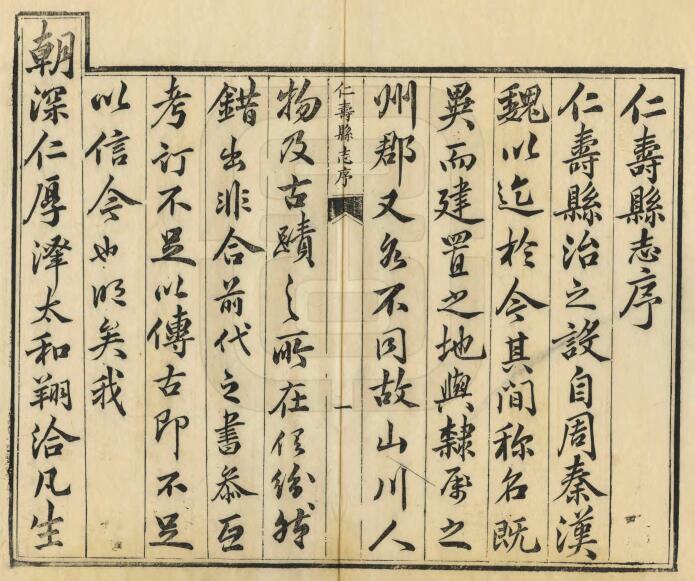 仁壽縣志序
仁壽縣治之設自周秦漢
魏以迄於今其間称名既
異而建置之地與隸屬之
州郡又各不同故山川人
仁壽縣志序
一
物及古蹟之所在後紛然
錯出非合前代之書叅互
考訂不足以傳古即不足
以信今也明矣我
朝深仁厚澤太和翔洽凡生